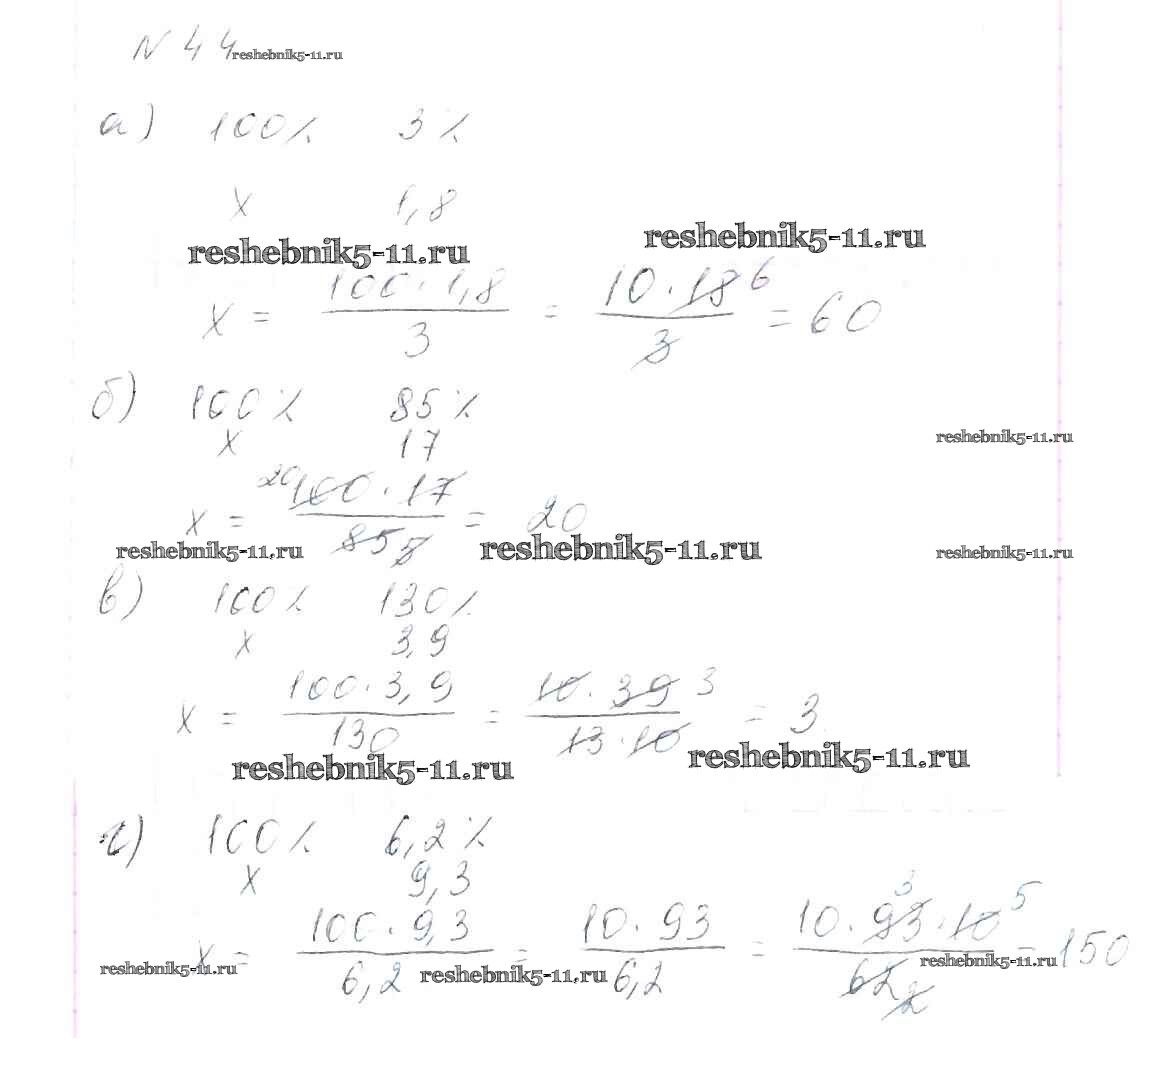 N 44 reshebnik5-11.ru
а) 100% 3%
x 1,8
reshebnik5-11.ru reshebnik5-11.ru
x = 100·1,8/3 = 10·18 6/3 = 60
б) 100% 85%
x 17
reshebnik5-11.ru
x = 20 100·17/85 5 = 20
reshebnik5-11.ru reshebnik5-11.ru reshebnik5-11.ru
в) 100% 130%
x 3,9
x = 100·3,9/130 = 10·39 3/13·10 = 3
reshebnik5-11.ru reshebnik5-11.ru
г) 100% 6,2%
x 9,3
x = 100·9,3/6,2 = 10·93/6,2 = 10·93 3·10 5/62 2 = 150
reshebnik5-11.ru reshebnik5-11.ru reshebnik5-11.ru